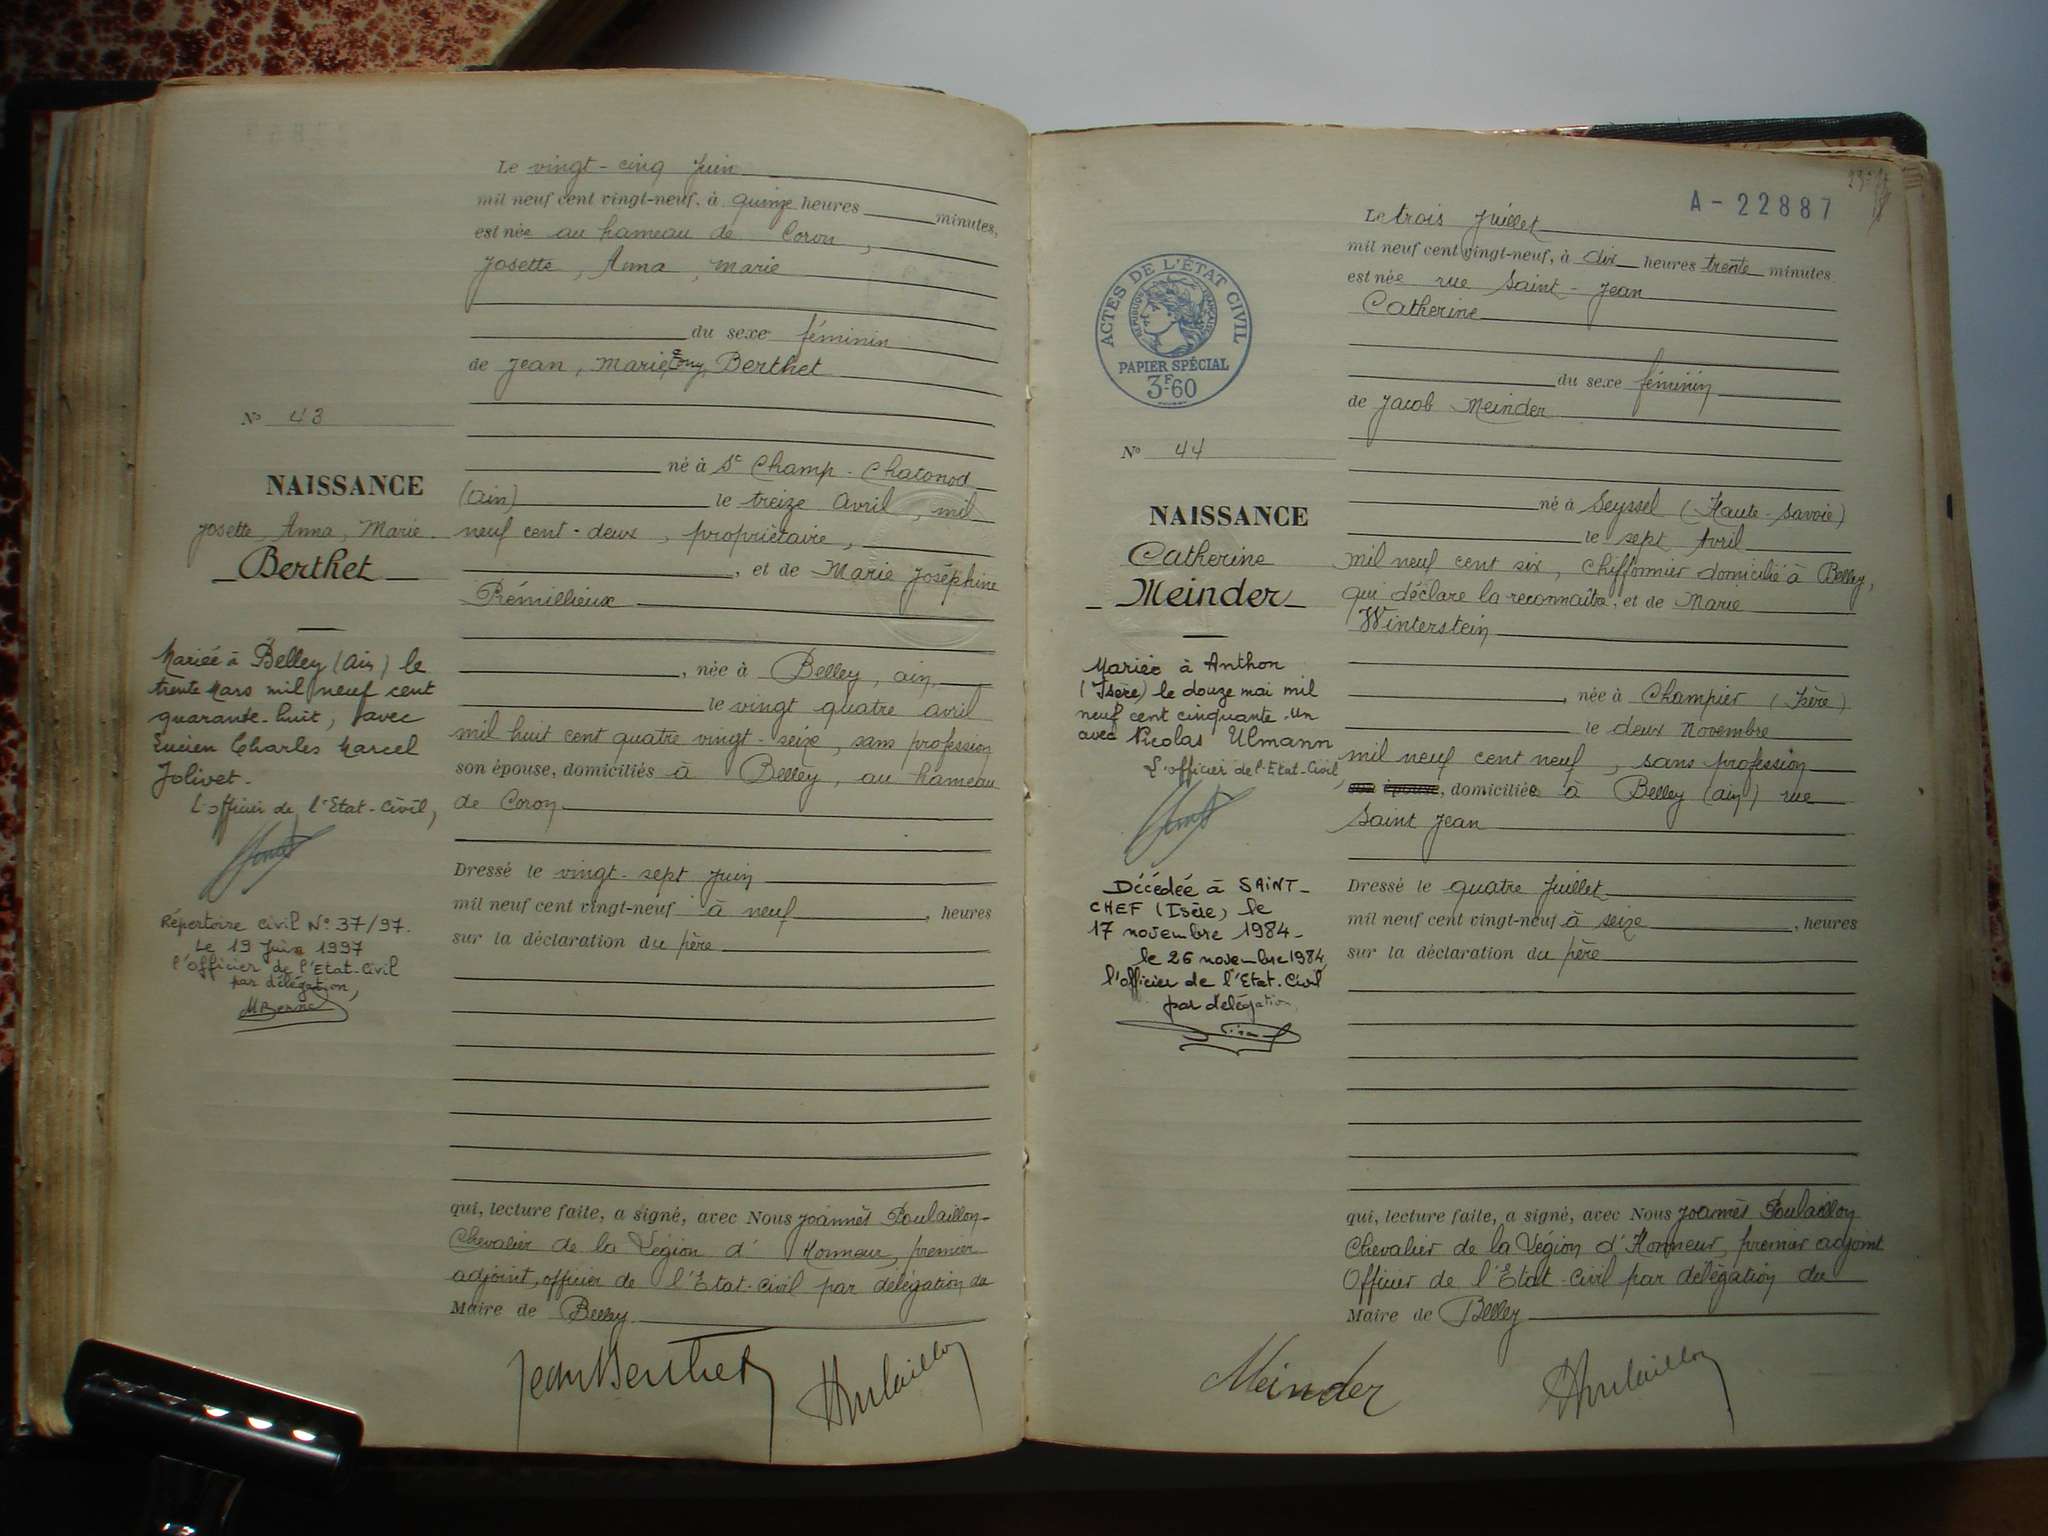 Le vingt-cinq Juin
mil neuf cent vingt-neuf, à quinze heures minutes,
est née au hameau de Coron,
Josette, Anna, Marie
du sexe féminin
de Jean, Marie, Tony, Berthet
N° 43
NAISSANCE
Josette, Anna, Marie
Berthet
né à St Champ-Chatonod
(ain) le treize Avril, mil
neuf cent-deux, propriétaire,
, et de Marie Joséphine
Prémillieux
, née à Belley, ain,
le vingt quatre avril
mil huit cent quatre vingt-seize, sans profession
son épouse, domiciliés à Belley, au hameau
de Coron
Dressé le vingt-sept Juin
mil neuf cent vingt-neuf à neuf , heures
sur la déclaration du père
qui, lecture faite, a signé, avec Nous Joannès Poulaillon
Chevalier de la Légion d'Honneur, premier
adjoint, officier de l'Etat-civil par délégation du
Maire de Belley
Jean Berthet
Poulaillon
Mariée à Belley (Ain) le
trente Mars mil neuf cent
quarante-huit, avec
Lucien Charles Marcel
Jolivet.
L'officier de l'Etat-Civil,
Répertoire Civil N° 37/97.
Le 19 Juin 1997
l'officier de l'Etat-Civil
par délégation,
A-22887
Le trois Juillet
mil neuf cent vingt-neuf, à dix heures trente minutes
est née rue Saint-Jean
Catherine
du sexe féminin
de Jacob Meinder
ACTES DE L'ÉTAT CIVIL
RÉPUBLIQUE FRANÇAISE
PAPIER SPÉCIAL
3F60
N° 44
NAISSANCE
Catherine
Meinder
né à Seyssel (Haute-Savoie)
le sept Avril
mil neuf cent six, chiffonnier domicilié à Belley,
qui déclare la reconnaître, et de Marie
Winterstein
, née à Champier (Isère)
le deux Novembre
mil neuf cent neuf, sans profession
son épouse, domiciliée à Belley (ain) rue
Saint Jean
Dressé le quatre Juillet
mil neuf cent vingt-neuf à seize , heures
sur la déclaration du père
qui, lecture faite, a signé, avec Nous Joannès Poulaillon
Chevalier de la Légion d'Honneur, premier adjoint
Officier de l'Etat-Civil par délégation du
Maire de Belley
Meinder
Poulaillon
Mariée à Anthon
(Isère) le douze mai mil
neuf cent cinquante-un
avec Nicolas Ulmann
L'officier de l'Etat-Civil,
Décédée à SAINT-
CHEF (Isère) le
17 novembre 1984-
le 26 novembre 1984
l'officier de l'Etat-Civil
par délégation